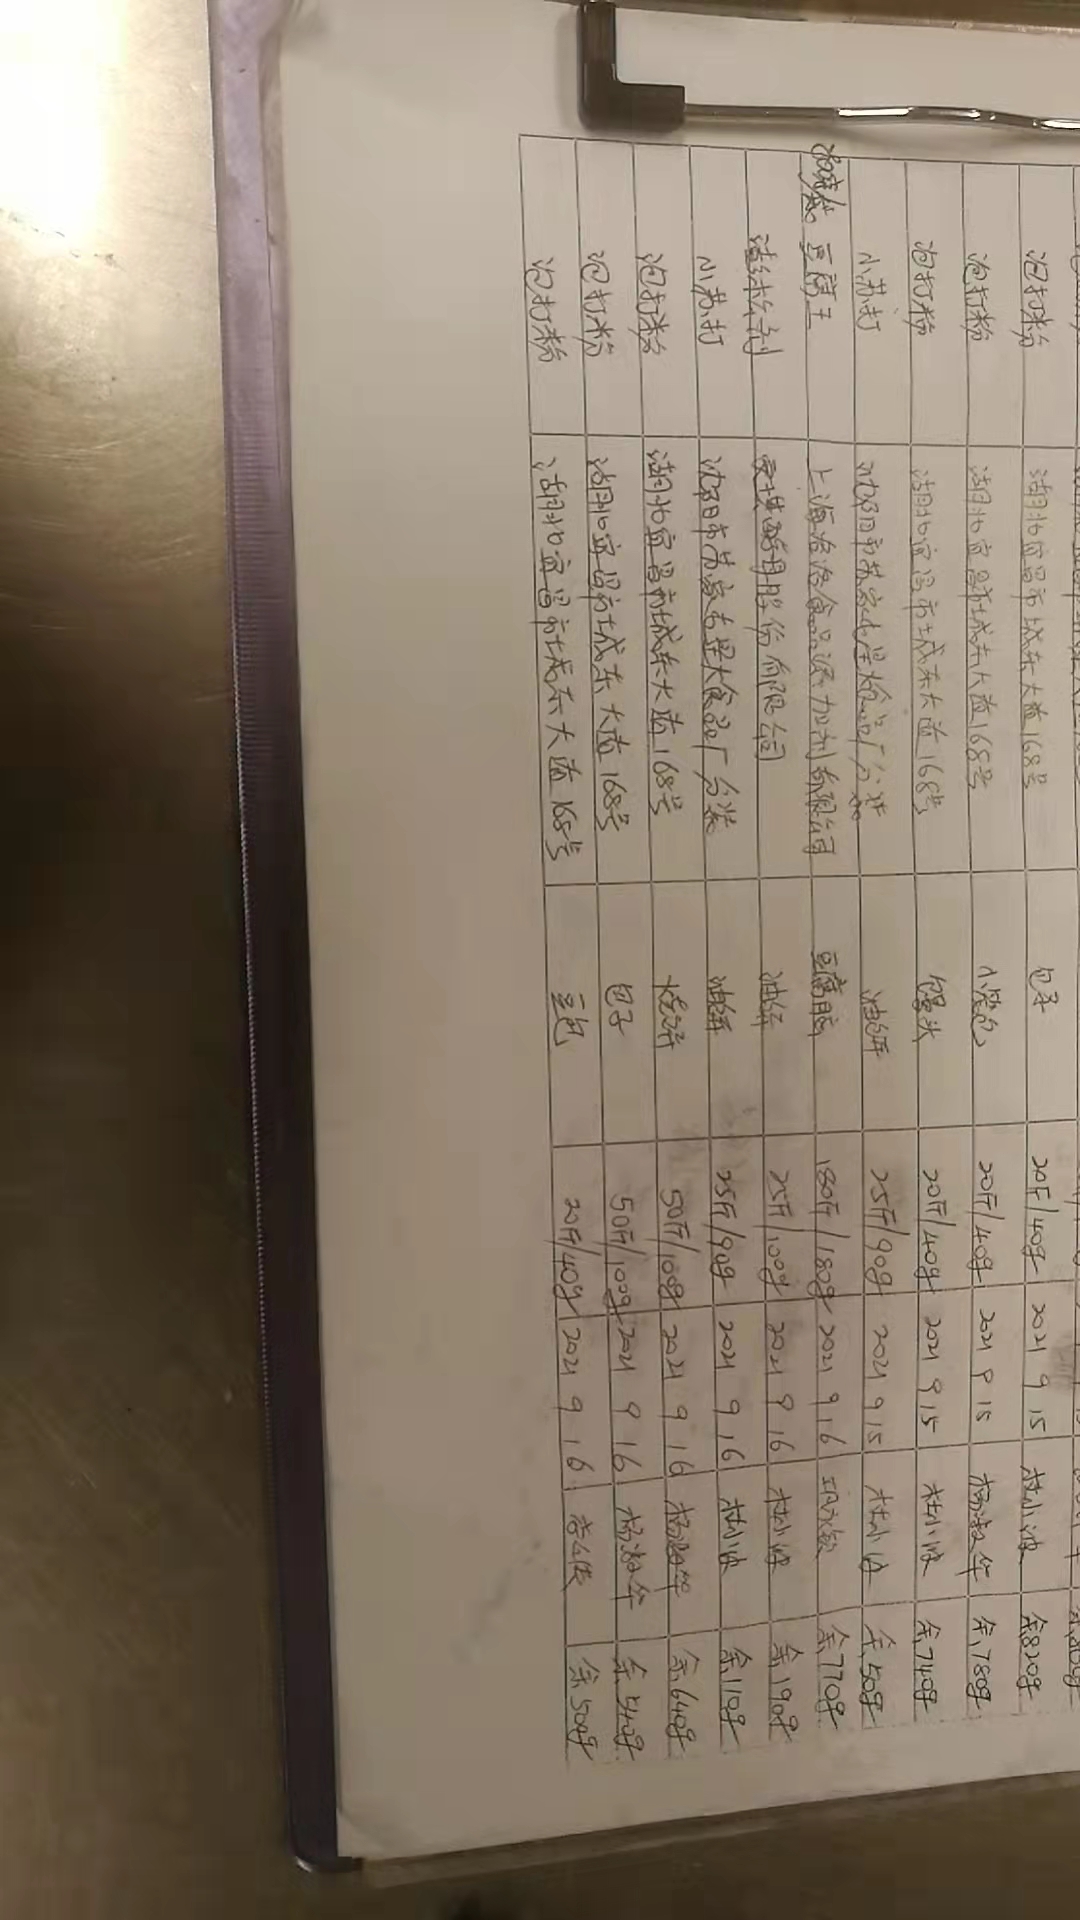 泡打粉 湖北宜昌市城东大道168号 包子 20斤/40g 2021 9 15 杜小波 余820g
泡打粉 湖北宜昌市城东大道168号 小笼包 20斤/40g 2021 9 15 杨淑华 余780g
泡打粉 湖北宜昌市城东大道168号 馒头 20斤/40g 2021 9 15 杜小波 余740g
小苏打 沈阳市苏家屯星火食品厂分装 油饼 25斤/90g 2021 9 15 杜小波 余50g
豆腐王 上海 食品添加剂有限公司 豆腐脑 180斤/180g 2021 9 16 余770g
安琪酵母股份有限公司 油饼 25斤/100g 2021 9 16 杜小波 余190g
小苏打 沈阳市苏家屯星火食品厂分装 油饼 25斤/90g 2021 9 16 杜小波 余110g
泡打粉 湖北宜昌市城东大道168号 烧饼 50斤/100g 2021 9 16 杨淑华 余640g
泡打粉 湖北宜昌市城东大道168号 包子 50斤/100g 2021 9 16 杨淑华 余540g
泡打粉 湖北宜昌市城东大道168号 豆包 20斤/40g 2021 9 16 余50g